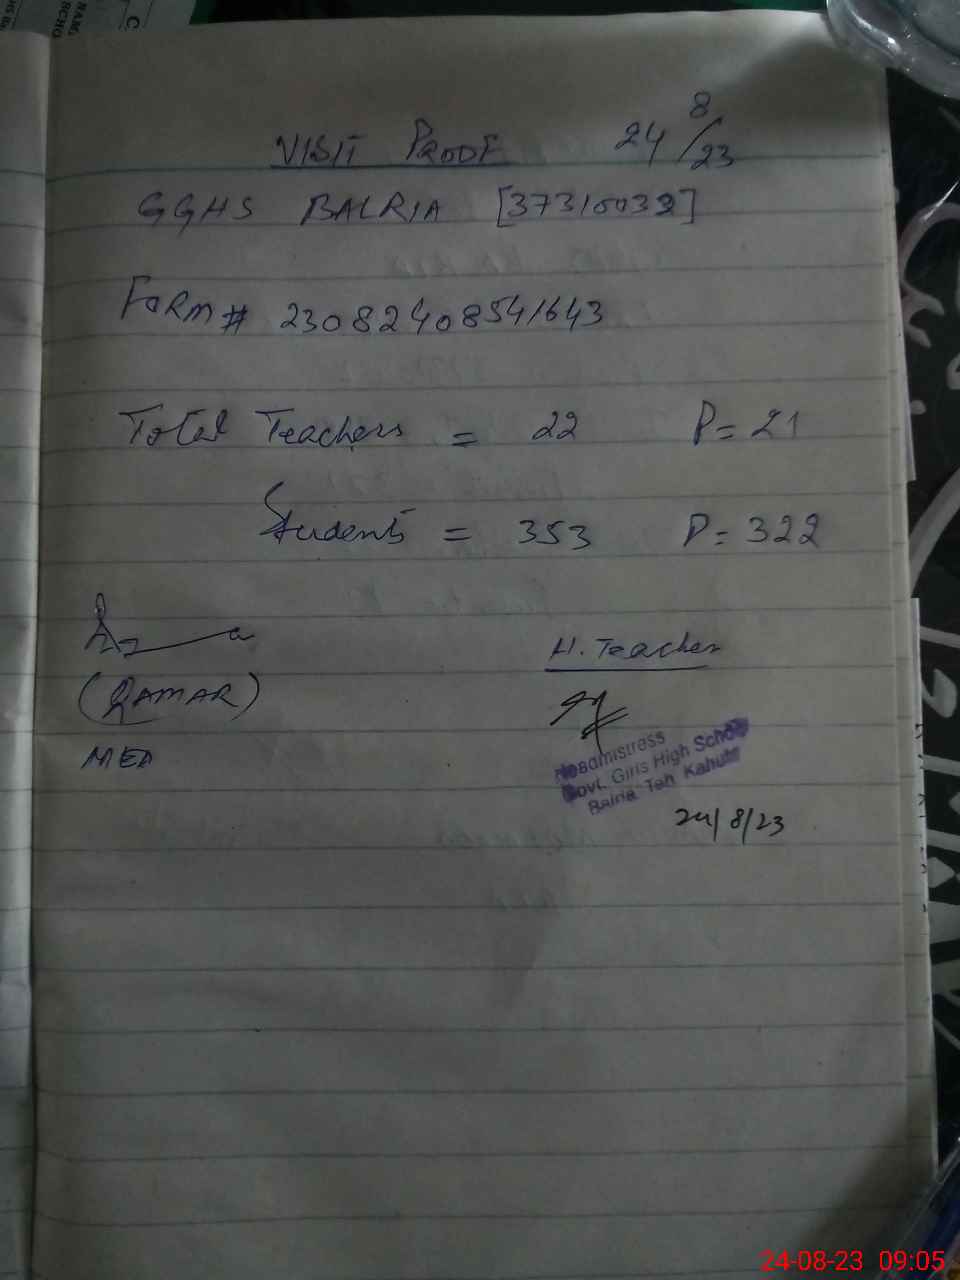 VISIT PROOF 24/8/23
GGHS BALRIA [37310039]
FORM # 230824085541643
Total Teachers = 22 P= 21
Students = 353 P= 322
H. Teacher
(QAMAR)
MEA
Headmistress
Govt. Girls High School
Balria Teh Kahuta
24/8/23
24-08-23 09:05